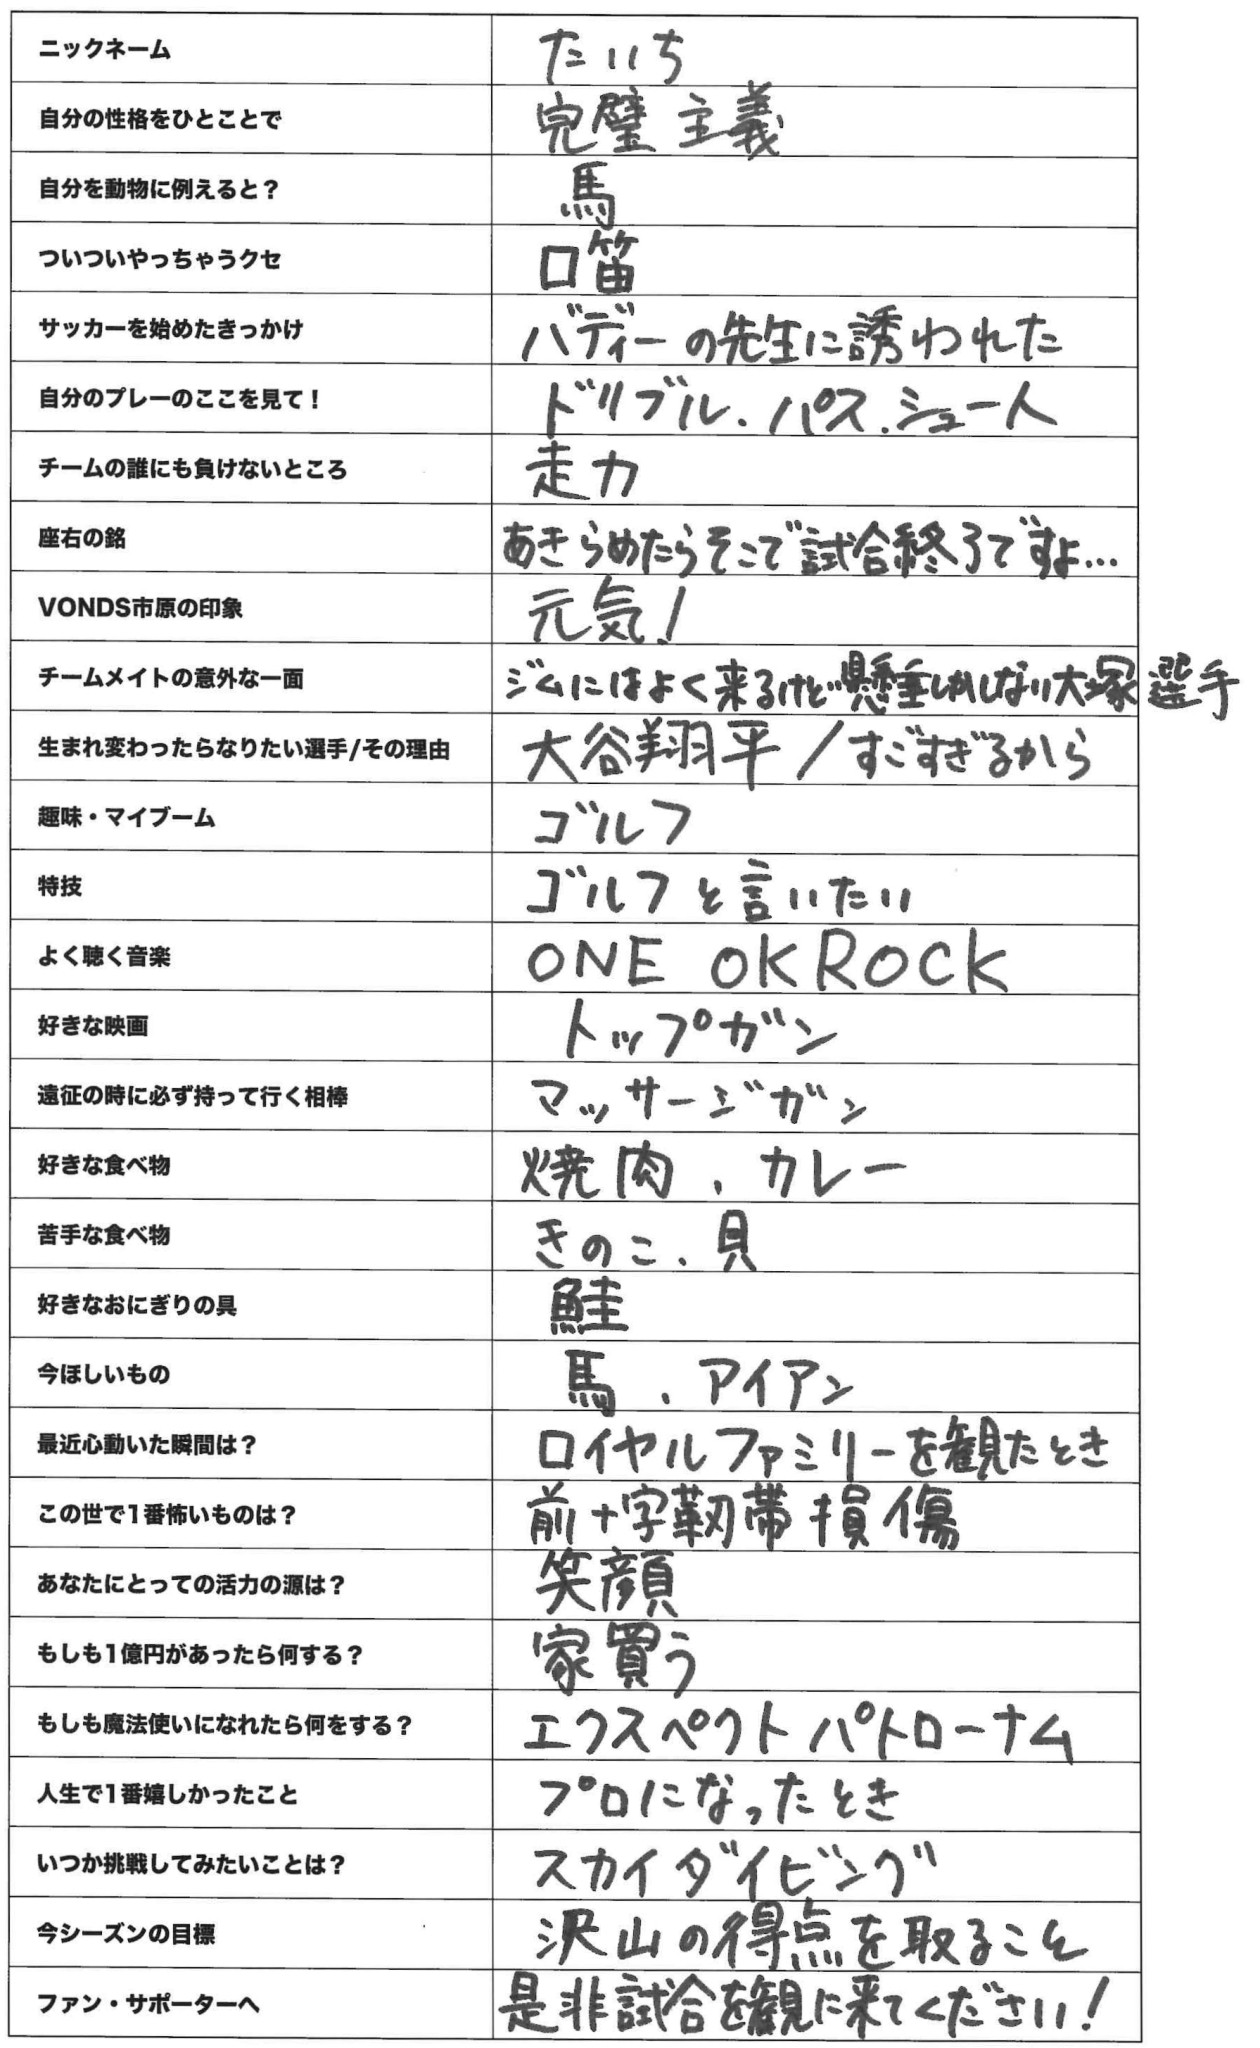 ニックネーム たいち
自分の性格をひとことで 完璧主義
自分を動物に例えると？ 馬
ついついやっちゃうクセ 口笛
サッカーを始めたきっかけ バディーの先生に誘われた
自分のプレーのここを見て！ ドリブル、パス、シュート
チームの誰にも負けないところ 走力
座右の銘 あきらめたらそこで試合終了ですよ…
VONDS市原の印象 元気！
チームメイトの意外な一面 ジムにはよく来るけど懸垂しかしない大塚選手
生まれ変わったらなりたい選手/その理由 大谷翔平／すごすぎるから
趣味・マイブーム ゴルフ
特技 ゴルフと言いたい
よく聴く音楽 ONE OK ROCK
好きな映画 トップガン
遠征の時に必ず持って行く相棒 マッサージガン
好きな食べ物 焼肉、カレー
苦手な食べ物 きのこ、貝
好きなおにぎりの具 鮭
今ほしいもの 馬、アイアン
最近心動いた瞬間は？ ロイヤルファミリーを観たとき
この世で1番怖いものは？ 前十字靭帯損傷
あなたにとっての活力の源は？ 笑顔
もしも1億円があったら何する？ 家買う
もしも魔法使いになれたら何をする？ エクスペクトパトローナム
人生で1番嬉しかったこと プロになったとき
いつか挑戦してみたいことは？ スカイダイビング
今シーズンの目標 沢山の得点を取ること
ファン・サポーターへ 是非試合を観に来てください！